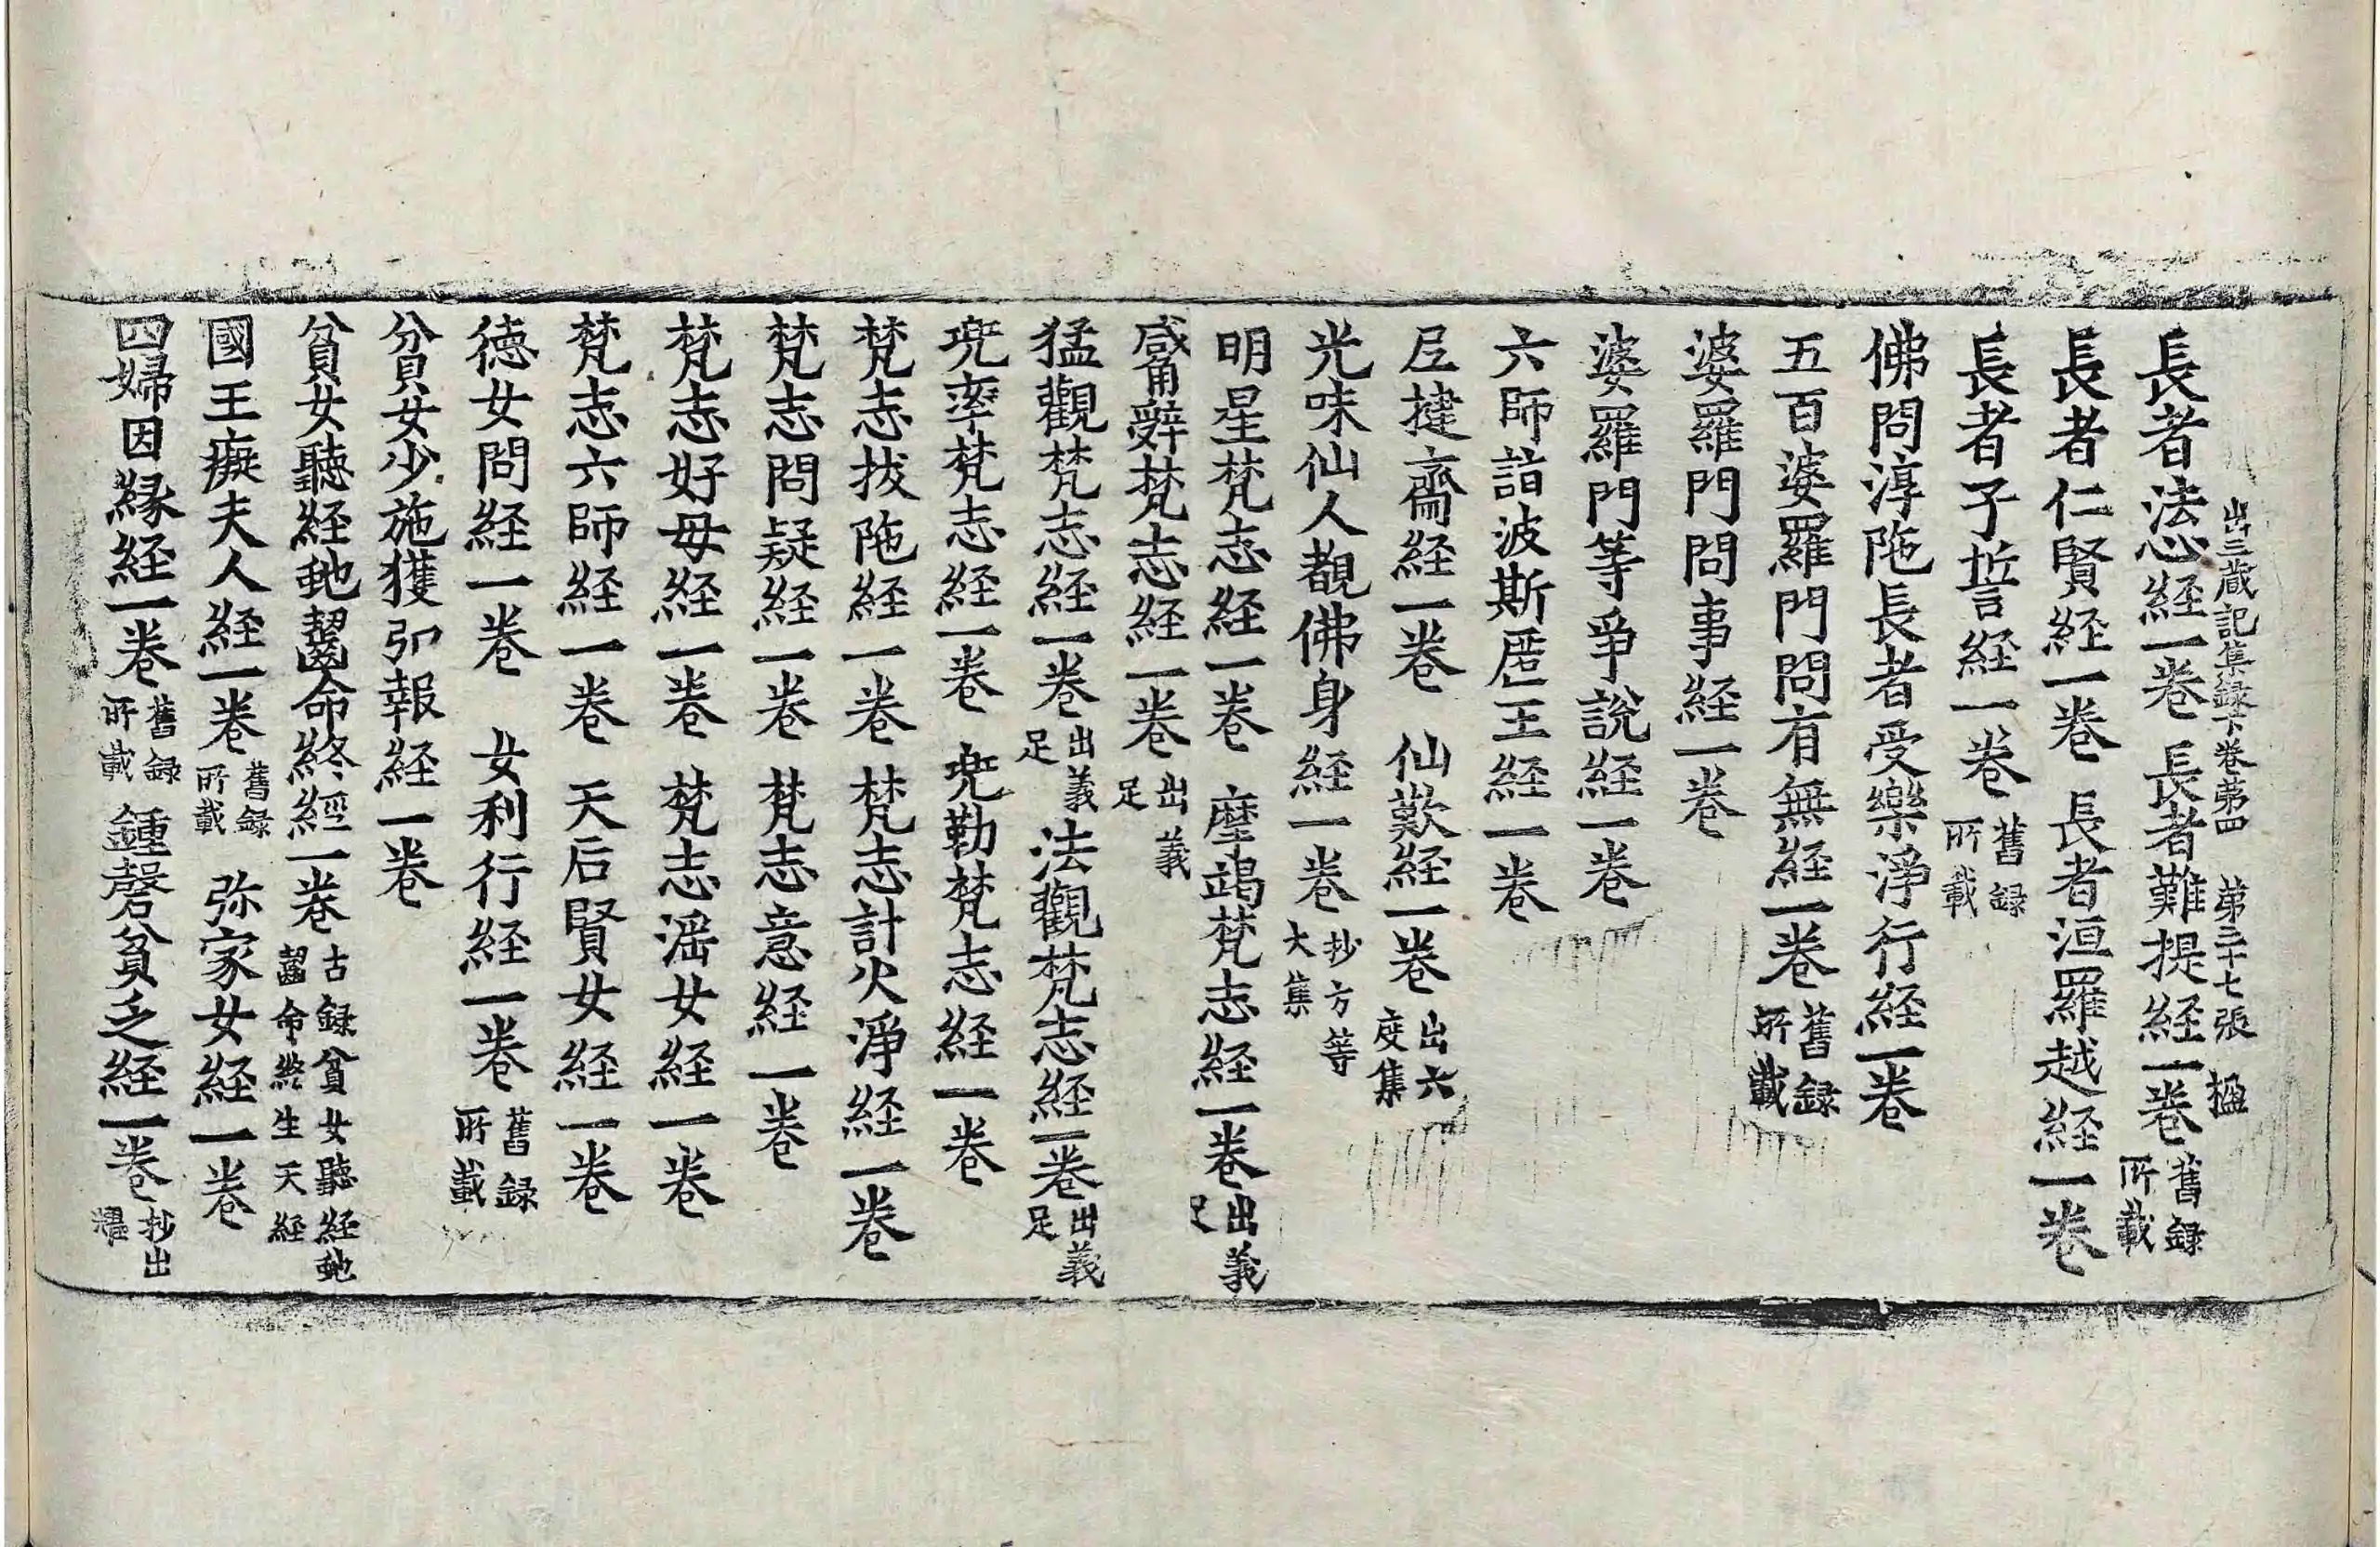 出三蔵記集録下巻苐四 苐三十七張 楹
長者法忘経一巻 長者難提経一巻 舊録所載
長者仁賢経一巻 長者洹羅越経一巻
長者子誓経一巻 舊録所載
佛問淳陁長者受樂淨行経一巻
五百婆羅門問有無経一巻 舊録所載
婆羅門問事経一巻
婆羅門等爭說経一巻
六師詣波斯匿王経一巻
尼揵齋経一巻 仙歎経一巻 出六度集
光味仙人覩佛身経一巻 抄方等大集
明星梵志経一巻 摩竭梵志経一巻 出義足
梵志経一巻 出義足
猛觀梵志経一巻 出義足 法觀梵志経一巻 出義足
兠率梵志経一巻 兠勒梵志経一巻
梵志拔陁経一巻 梵志計火淨経一巻
梵志問疑経一巻 梵志意経一巻
梵志好母経一巻 梵志滛女経一巻
梵志六師経一巻 天后賢女経一巻
德女問経一巻 女利行経一巻 舊録所載
貧女少施獲弘報経一巻
貧女聽経虵齧命終經一巻 古録貧女聽経虵齧命終生天経
國王癡夫人経一巻 舊録所載 弥家女経一巻
四婦因縁経一巻 舊録所載 鍾磬貧乏経一巻 抄出